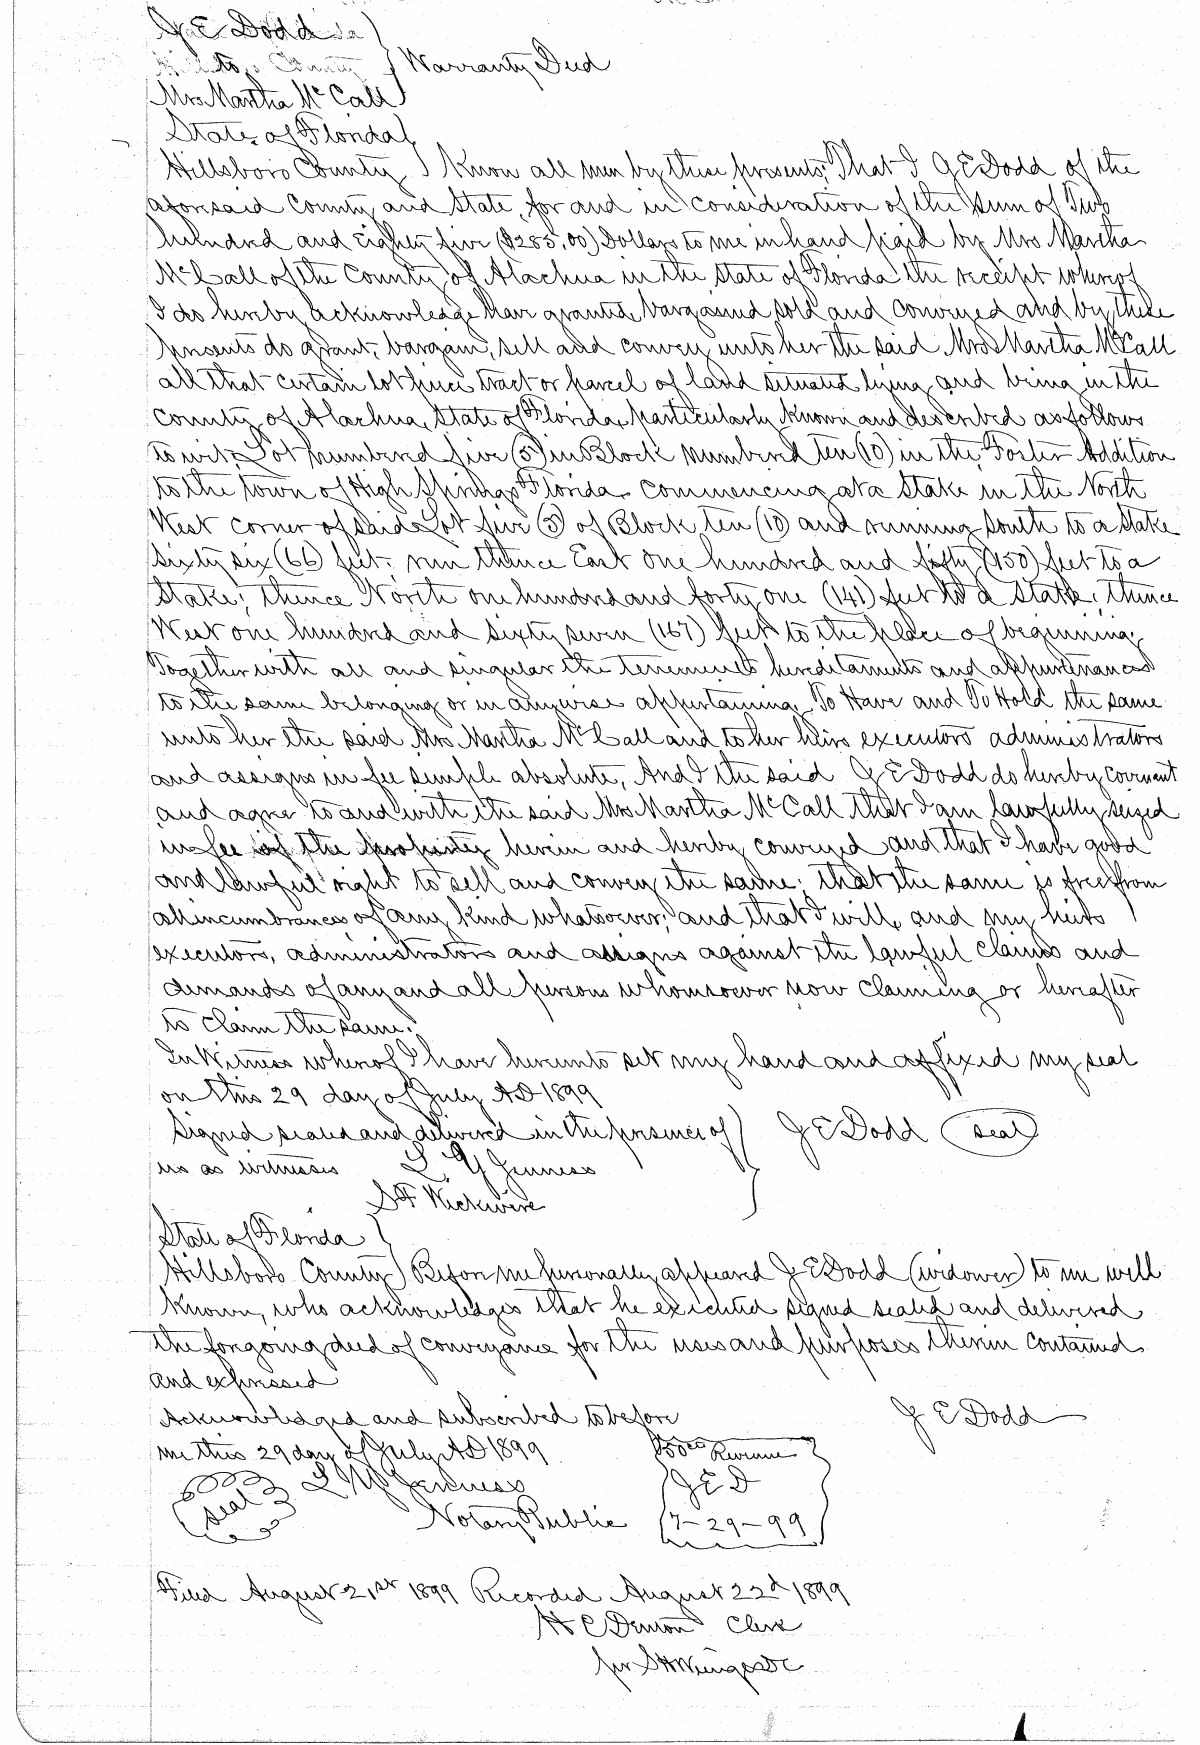 J E Dodd
to County } Warranty Deed
Mrs Martha McCall
State of Florida
Hillsboro County } Know all men by these presents, That I J E Dodd of the
aforesaid County and State, for and in consideration of the sum of Two
hundred and eighty five ($285.00) Dollars to me in hand paid by Mrs Martha
McCall of the County of Alachua in the State of Florida the receipt whereof
I do hereby acknowledge have granted, bargained sold and conveyed and by these
presents do grant, bargain, sell and convey unto her the said Mrs Martha McCall
all that certain lot piece tract or parcel of land situated lying and being in the
County of Alachua, State of Florida, particularly known and described as follows
to wit: Lot numbered five (5) in Block numbered ten (10) in the Foster Addition
to the town of High Springs Florida commencing at a stake in the North
West corner of said Lot five (5) of Block ten (10) and running south to a stake
sixty six (66) feet; run thence East one hundred and fifty (150) feet to a
stake; thence North one hundred and forty one (141) feet to a stake; thence
West one hundred and sixty seven (167) feet to the place of beginning.
Together with all and singular the tenements hereditaments and appurtenances
to the same belonging or in anywise appertaining, To Have and To Hold the same
unto her the said Mrs Martha McCall and to her heirs executors administrators
and assigns in fee simple absolute, And I the said J E Dodd do hereby covenant
and agree to and with the said Mrs Martha McCall that I am lawfully seized
in fee of the property herein and hereby conveyed and that I have good
and lawful right to sell and convey the same; that the same is free from
all incumbrances of any kind whatsoever; and that I will, and my heirs
executors, administrators and assigns against the lawful claims and
demands of any and all persons whomsoever now claiming or hereafter
to claim the same.
In Witness whereof I have hereunto set my hand and affixed my seal
on this 29 day of July AD 1899
Signed sealed and delivered in the presence of } J E Dodd (seal)
us as witnesses L Y Jenness
S F Wickwire
State of Florida
Hillsboro County } Before me personally appeared J E Dodd (widower) to me well
known, who acknowledges that he executed signed sealed and delivered
the forgoing deed of conveyance for the uses and purposes therein contained
and expressed
Acknowledged and subscribed to before J E Dodd
me this 29 day of July AD 1899 Revenue
(seal) L Y Jenness J E D
Notary Public 7-29-99
Filed August 21st 1899 Recorded August 22d 1899
H C Denton Clerk
per S H Wienges DC